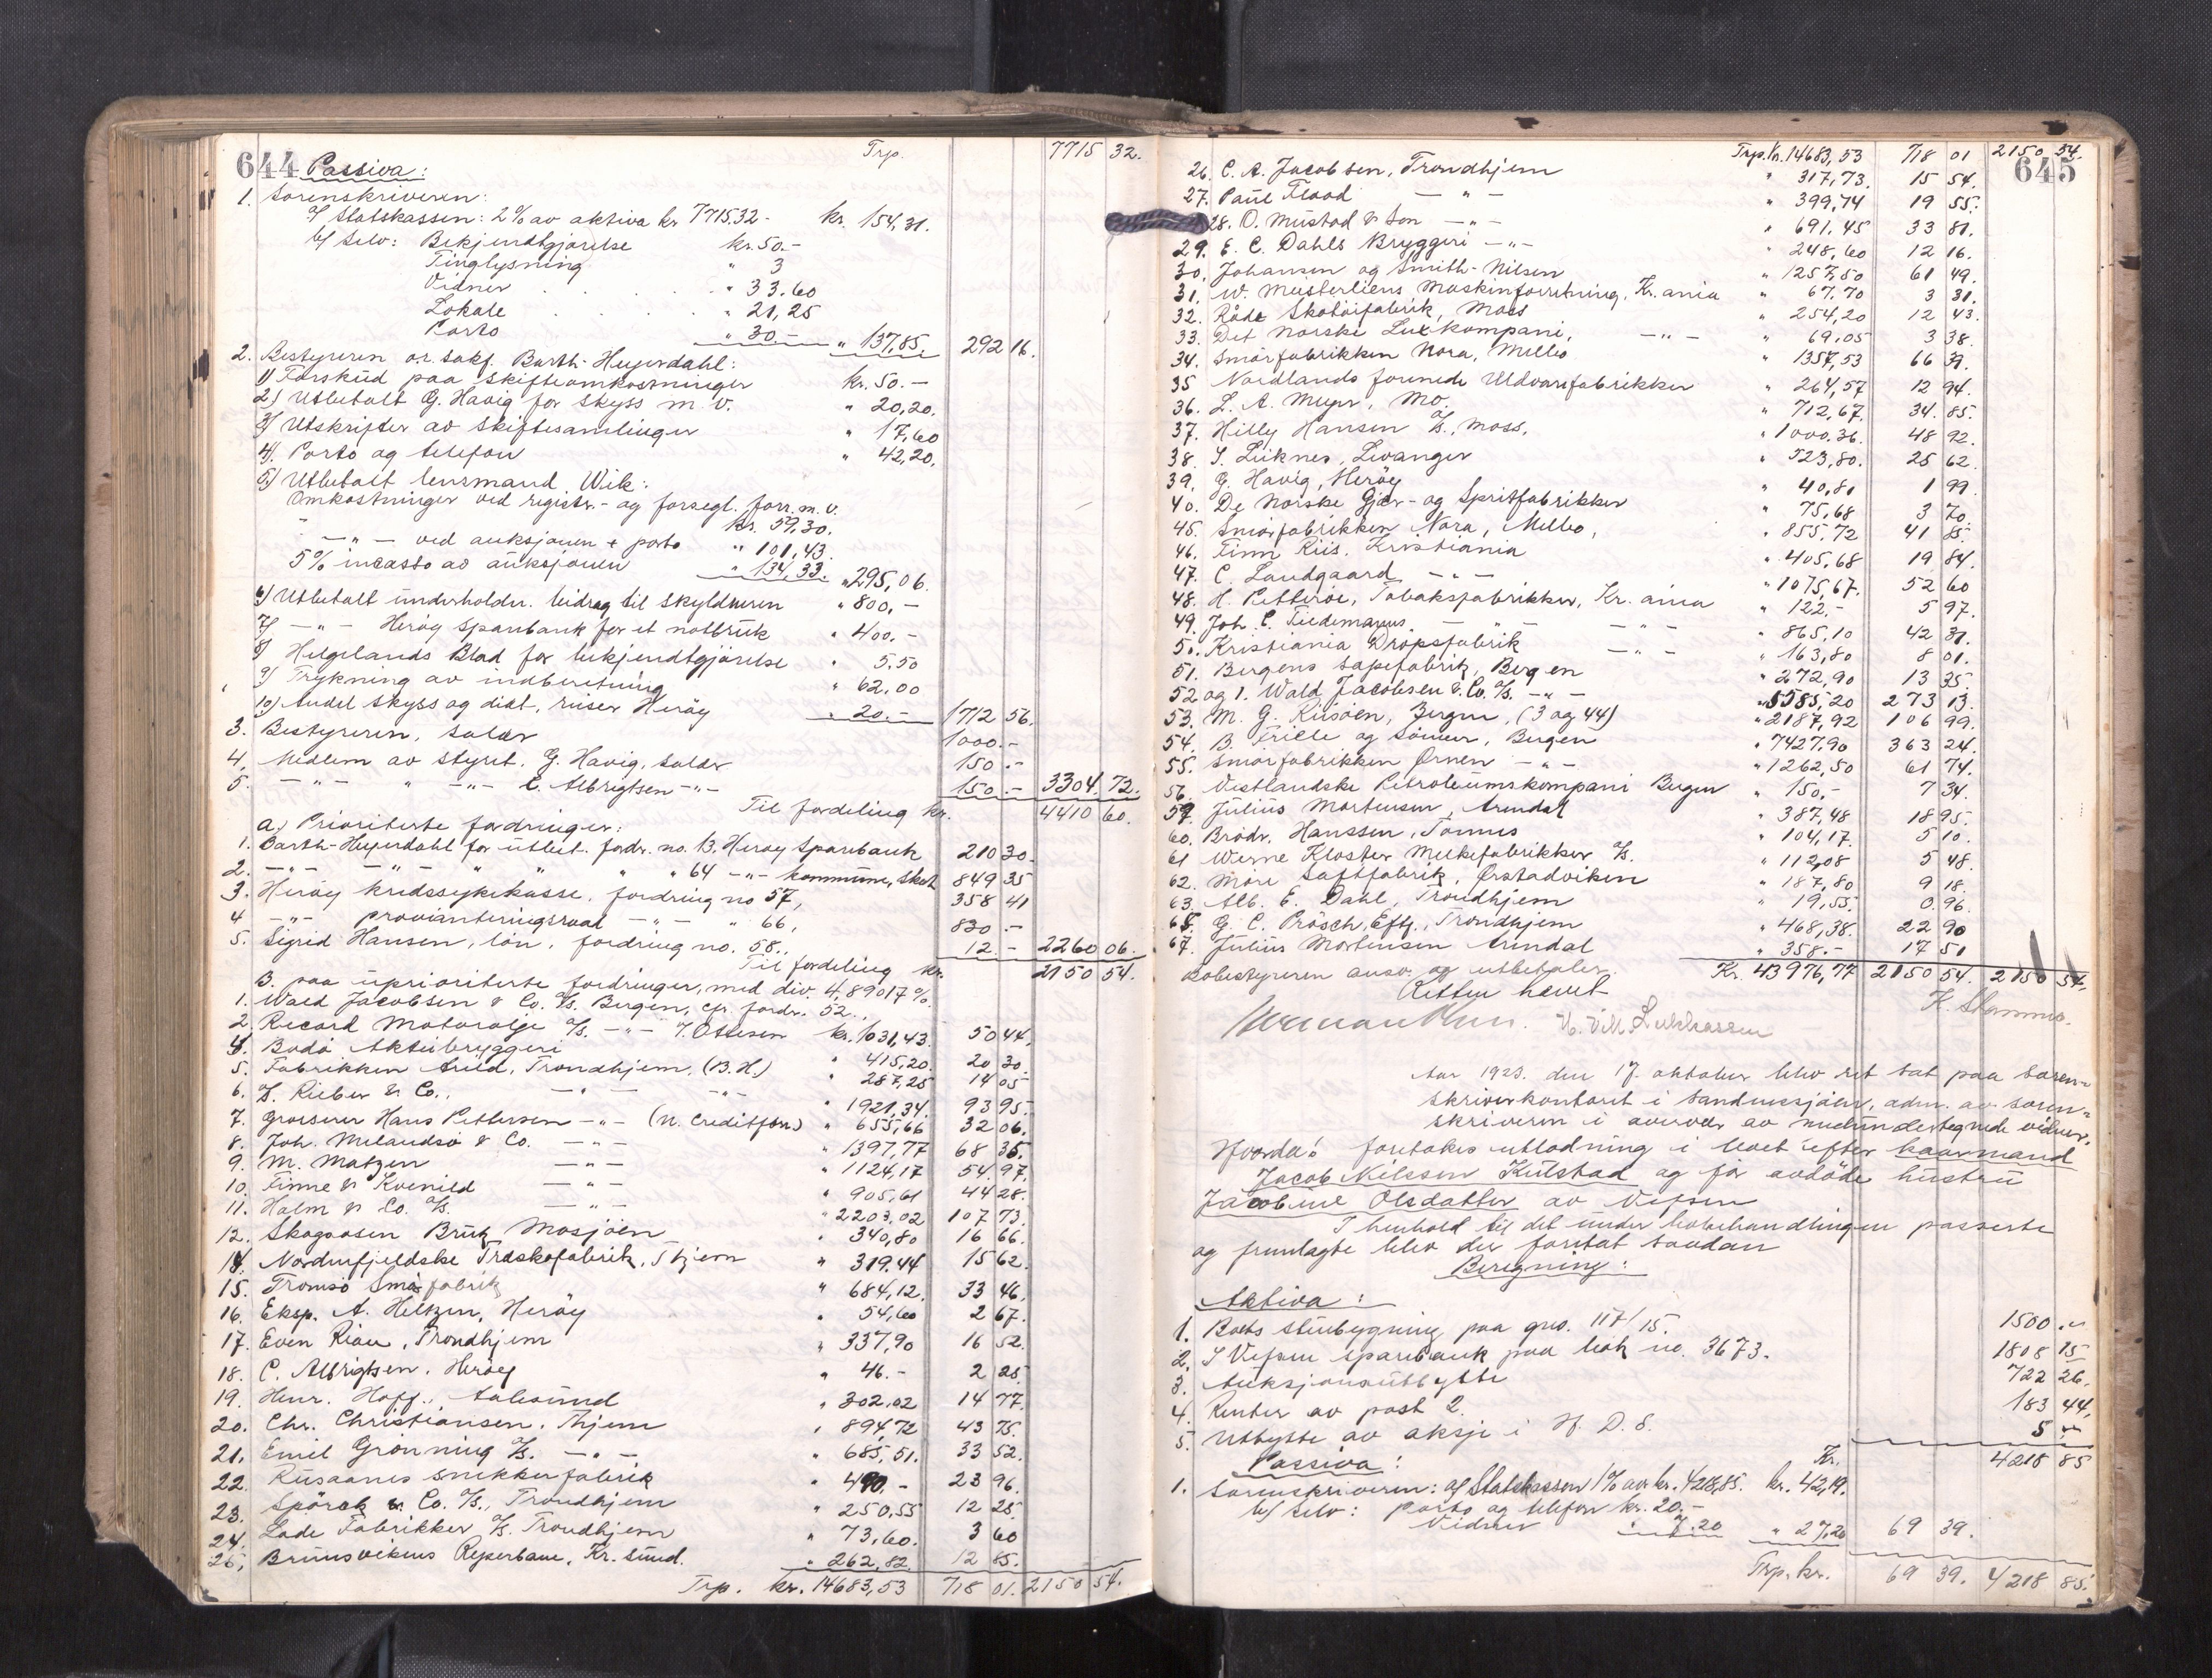 644 Passiva: Trp. 7715 32.
1. Sorenskriveren:
a/ Statskassen: 2% av aktiva kr 7715 32.- kr. 154,31.
b/ Selv: Bekjendtgjørelse kr. 50.-
Tinglysning " 3
Vidner " 33.60
Lokale " 21,25
Porto " 30.- " 137,85. 292 16.
2. Bestyreren o.r. sakf. Barth-Heyerdahl:
1) Forskud paa skifteomkostninger kr. 50.-
2) Utbetalt G. Havig for skyss m.v. " 20,20.
3) Utskrifter av skiftesamlinger " 17,60
4) Porto og telefon " 42,20.
5) Utbetalt lensmand Wik:
Omkostninger ved registr.- og forsegl. forr. m.v.
kr. 59,30.
-"- ved auksjonen + porto " 101,43.
5% incasso av auksjonen " 134,33. " 295,06.
6) Utbetalt underholdn. bidrag til skyldneren " 800,-
7) -"- Herøy Sparebank for et notbruk " 400.-
8) Helgelands Blad for bekjendtgjørelse " 5.50
9) Trykning av indberetning " 62,00
10) Andel skyss og diæt, reiser Herøy " 20.- 1712 56.
3. Bestyreren, salær 1000.-
4. Medlem av styret. G. Havig, salær 150.-
5. -"- " -"- C. Albrigtsen -"- 150.- 3304.72.
Til fordeling kr. 4410 60.
a.) Prioriterte fordringer:
1. Barth-Heyerdahl for utbet. fordr. no. 13, Herøy Sparebank 210 30.
2. -"- -"- " " " 64 -"- kommune, skat 849 35
3. Herøy kredssykekasse, fordring no 57, 358 41
4 -"- provianteringsraad -"- " 66, 830.-
5. Sigrid Hansen, løn, fordring no. 58., 12.- 2260 06.
Til fordeling kr. 2150 54.
B. paa uprioriterte fordringer, med div. 4,89017%.
1. Wald Jacobsen & Co. A/S. Bergen, cfr. fordr. 52..
2 Record Motorolje A/S. -"- J. Ottesen kr. 1031,43. 50 44.
4. Bodø Aktiebryggeri " 415,20. 20 30.
5. Fabrikken Arild, Trondhjem, (B.H.) " 287,25 14 05
6. A/S. Rieber & Co., -"- -"- " 1921,34. 93 95.
7. Grosserer Hans Pettersen -"- (N. Creditforn.) " 655,66 32 06.
8. Joh. Melandsø & Co. -"- " 1397,77 68 35.
9. M. Matzen -"- " 1124,17 54.97.
10. Finne & Kvenild -"- " 905,61 44 28.
11. Holm & Co. A/S. -"- " 2203,02 107 73.
12. Skogaasen Bruk Mosjøen " 340,80 16 66.
14. Nordenfjeldske Træskofabrik, T.hjem " 319,44 15 62.
15. Tromsø Smørfabrik " 684,12. 33 46.
16. Eksp. A. Heltzen, Herøy " 54,60 2 67.
17. Even Riau, Trondhjem " 337,90 16 52.
18. C. Albrigtsen, Herøy " 46.- 2 25.
19. Henr. Hoff., Aalesund " 302,02 14 77.
20. Chr. Christiansen. Thjem " 894,72 43 75.
21. Emil Grønning A/S. -"- " 685,51. 33 52.
22. Rusaanes snekkerfabrik " 490.- 23 96.
23. Spörck & Co. A/S., Trondhjem " 250,55 12 25.
24. Lade Fabrikker A/S. Trondhjem " 73,60. 3 60
25. Brunsvikens Reperbane, Kr.sund. " 262,82 12 85.
Trp. kr. 14683,53 718 01. 2150 54.
645 Trp. kr. 14683,53 718 01 2150 54.
26. C. A. Jacobsen, Trondhjem " 317,73. 15 54.
27. Paul Flood -"- " 399,74 19 55.
28. O. Mustad & Søn -"- " 691,45 33 81.
29. E. C. Dahls Bryggeri -"- " 248,60 12 16.
30. Johansen og Smith-Nilsen " 1257,50 61 49.
31. W. Meisterliens Maskinforretning, Kr.ania " 67.70 3 31.
32. Råde Skotøifabrik, Moss " 254,20 12 43.
33. Det Norske Luxkompani, -"- " 69,05 3 38.
34. Smørfabrikken Nora, Melbo " 1357,53 66 39.
35 Nordlands forenede Uldvarefabrikker " 264,57 12 94.
36. L. A. Meyer, Mo. " 712,67. 34.85.
37. Hilly Hansen A/S., Moss. " 1000.36. 48 92.
38. S. Leiknes, Levanger " 523,80. 25 62.
39. G. Havig, Herøy " 40,81 1 99
40. De Norske Gjær- og Spritfabrikker " 75,68 3 70.
45. Smørfabrikken Nora, Melbo, " 855,72 41 85.
46. Finn Riis. Kristiania " 405,68 19 84.
47. C. Landgaard -"- " 1075,67. 52 60
48. H. Petterøe, Tobaksfabrikker, Kr.ania " 122.- 5 97.
49. Joh. C. Tiedemanns -"- -"- " 865,10 42 31.
50. Kristiania Dropsfabrik -"- " 163,80 8 01.
51. Bergens Sæpefabrik, Bergen " 272,90 13 35.
52 og 1. Wald Jacobsen & Co. A/S. -"- " 5585,20 273 13.
53. M. G. Riisøen, Bergen, (3 og 44) " 2187,92 106 99.
54. B. Friele og Sønner, Bergen " 7427,90 363 24.
55. Smørfabrikken Ørnen -"- " 1262,50 61 74.
56. Vestlandske Petroleumskompani Bergen " 150,- 7 34.
59. Julius Mortensen, Arendal " 387,48 18 95.
60. Brødr. Hanssen, Tonnes " 104,17. 5 10.
61 Werne Kloster Melkefabrikker A/S. " 112,08 5 48.
62. Møre Saftfabrik, Ørstadviken " 187,80 9 18.
63. Alb. E. Dahl, Trondhjem " 19,55. 0.96.
65. G. C. Prösch, Eftf., Trondhjem " 468,38. 22 90
67. Julius Mortensen Arendal " 358.- 17 51
Bobestyreren ansv. og utbetaler. Kr. 43976,77 2150 54. 2150 54.
Retten hævet
K. Stamnes.
Aar 1923. den 17. oktober blev ret sat paa soren=
skriverkontoret i Sandnessjøen, adm. av soren=
skriveren i overvær av medundertegnede vidner.
Hvorda! foretokes utlodning i boet efter kaarmand
Jacob Nilssen Kulstad og før avdøde hustru
Jacobine Olsdatter av Vefsen
I henhold til det under bobehandlingen passerte
og fremlagte blev der foretat saadan
Beregning:
Aktiva:
1. Boets stuebygning paa gno. 117/15. 1500.-
2. I Vefsen sparebank paa bok no. 3673. 1808 15
3. Auksjonsutbytte 722 26.
4. Renter av post 2. 183 44.
5. Utbytte av aksje i H. D. S. 5 -
Kr. 4218 85
Passiva:
1. Sorenskriveren: a/ Statskassen 1% av kr. 4218,85. kr. 42,19.
b/ Selv: porto og telefon kr. 20.-
Vidner " 7.20 " 27,20 69 39.
Trp. kr. 69 39. 4218 85.